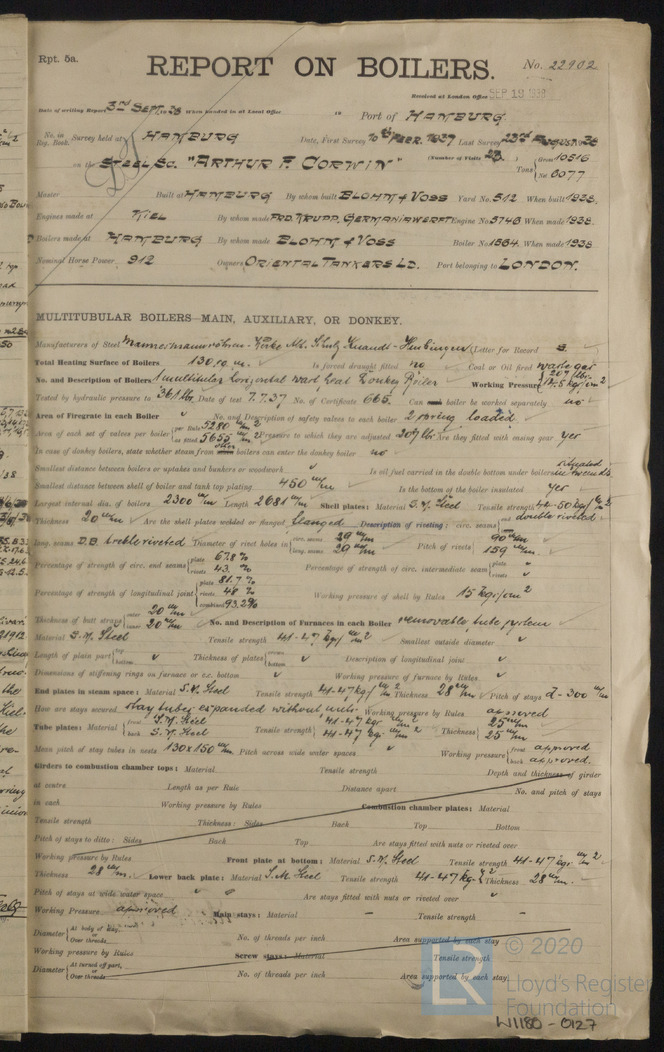 Rpt. 5a.
REPORT ON BOILERS.
No. 22902
Received at London Office SEP 19 1938
Date of writing Report 3rd Sept. 1938 When handed in at Local Office 19 Port of HAMBURG
No. in Reg. Book. Survey held at HAMBURG Date, First Survey 10th FEBR. 1937 Last Survey 23rd AUGUST 1938
on the STEEL SC. "ARTHUR F. CORWIN" (Number of Visits 23) Tons Gross 10516 Net 6077
Master Built at HAMBURG By whom built BLOHM & VOSS Yard No. 512 When built 1938.
Engines made at KIEL By whom made FRD. KRUPP, GERMANIAWERFT Engine No. 5746 When made 1938.
Boilers made at HAMBURG By whom made BLOHM & VOSS Boiler No. 1864. When made 1938
Nominal Horse Power 912 Owners ORIENTAL TANKERS LD. Port belonging to LONDON.
MULTITUBULAR BOILERS—MAIN, AUXILIARY, OR DONKEY.
Manufacturers of Steel (Letter for Record S.
Total Heating Surface of Boilers Is forced draught fitted no Coal or Oil fired waste gas
No. and Description of Boilers 1 multitular horizontal wast heat Donkey Boiler Working Pressure 207 lbs. 14.5 kg/cm2
Tested by hydraulic pressure to 361 lbs. Date of test 7.7.37 No. of Certificate 665. Can boiler be worked separately no
Area of Firegrate in each Boiler No. and Description of safety valves to each boiler 2 spring loaded
Area of each set of valves per boiler per Rule 5280 m/m2 as fitted 5655 m/m2 Pressure to which they are adjusted 207 lbs Are they fitted with easing gear yes
In case of donkey boilers, state whether steam from boilers can enter the donkey boiler no
Smallest distance between boilers or uptakes and bunkers or woodwork Is oil fuel carried in the double bottom under boilers situated in tweends
Smallest distance between shell of boiler and tank top plating 450 m/m Is the bottom of the boiler insulated yes
Largest internal dia. of boilers 2300 m/m Length 2681 m/m Shell plates: Material S.M. Steel Tensile strength 42-50 kg/m/m2
Thickness 20 m/m Are the shell plates welded or flanged flanged Description of riveting: circ. seams double riveted
long. seams D.B. treble riveted Diameter of rivet holes in circ. seams 29 m/m long. seams 29 m/m Pitch of rivets 90 m/m 159 m/m
Percentage of strength of circ. end seams plate 67.8% rivets 43.% Percentage of strength of circ. intermediate seam plate rivets
Percentage of strength of longitudinal joint plate 81.7% rivets 48% combined 93.2% Working pressure of shell by Rules 15 kgs/cm2
Thickness of butt straps outer 20 m/m inner 20 m/m No. and Description of Furnaces in each Boiler removable tube system
Material S.M. Steel Tensile strength 41-47 kg/m/m2 Smallest outside diameter
Length of plain part top bottom Thickness of plates crown bottom Description of longitudinal joint
Dimensions of stiffening rings on furnace or c.c. bottom Working pressure of furnace by Rules
End plates in steam space: Material S.M. Steel Tensile strength 41-47 kg/m/m2 Thickness 28 m/m Pitch of stays
How are stays secured stay tubes expanded without nuts Working pressure by Rules approved
Tube plates: Material front S.M. Steel back S.M. Steel Tensile strength 41-47 kgs m/m2 41-47 kgs m/m2 Thickness 25 m/m 25 m/m
Mean pitch of stay tubes in nests 130x150 m/m Pitch across wide water spaces Working pressure front approved back approved.
Girders to combustion chamber tops: Material Tensile strength Depth and thickness of girder
at centre Length as per Rule Distance apart No. and pitch of stays
in each Working pressure by Rules Combustion chamber plates: Material
Tensile strength Thickness: Sides Back Top Bottom
Pitch of stays to ditto: Sides Back Top Are stays fitted with nuts or riveted over
Working pressure by Rules Front plate at bottom: Material S.M. Steel Tensile strength 41-47 kgs m/m2
Thickness 28 m/m. Lower back plate: Material S.M. Steel Tensile strength 41-47 kg. m/m2 Thickness 28 m/m.
Pitch of stays at wide water space Are stays fitted with nuts or riveted over
Working Pressure approved Main stays: Material - Tensile strength -
Diameter At body of stay, or Over threads No. of threads per inch Area supported by each stay
Working pressure by Rules Screw stays: Material Tensile strength
Diameter At turned off part, or Over threads No. of threads per inch Area supported by each stay
© 2020
LR Lloyd's Register
Foundation
W1188-0127